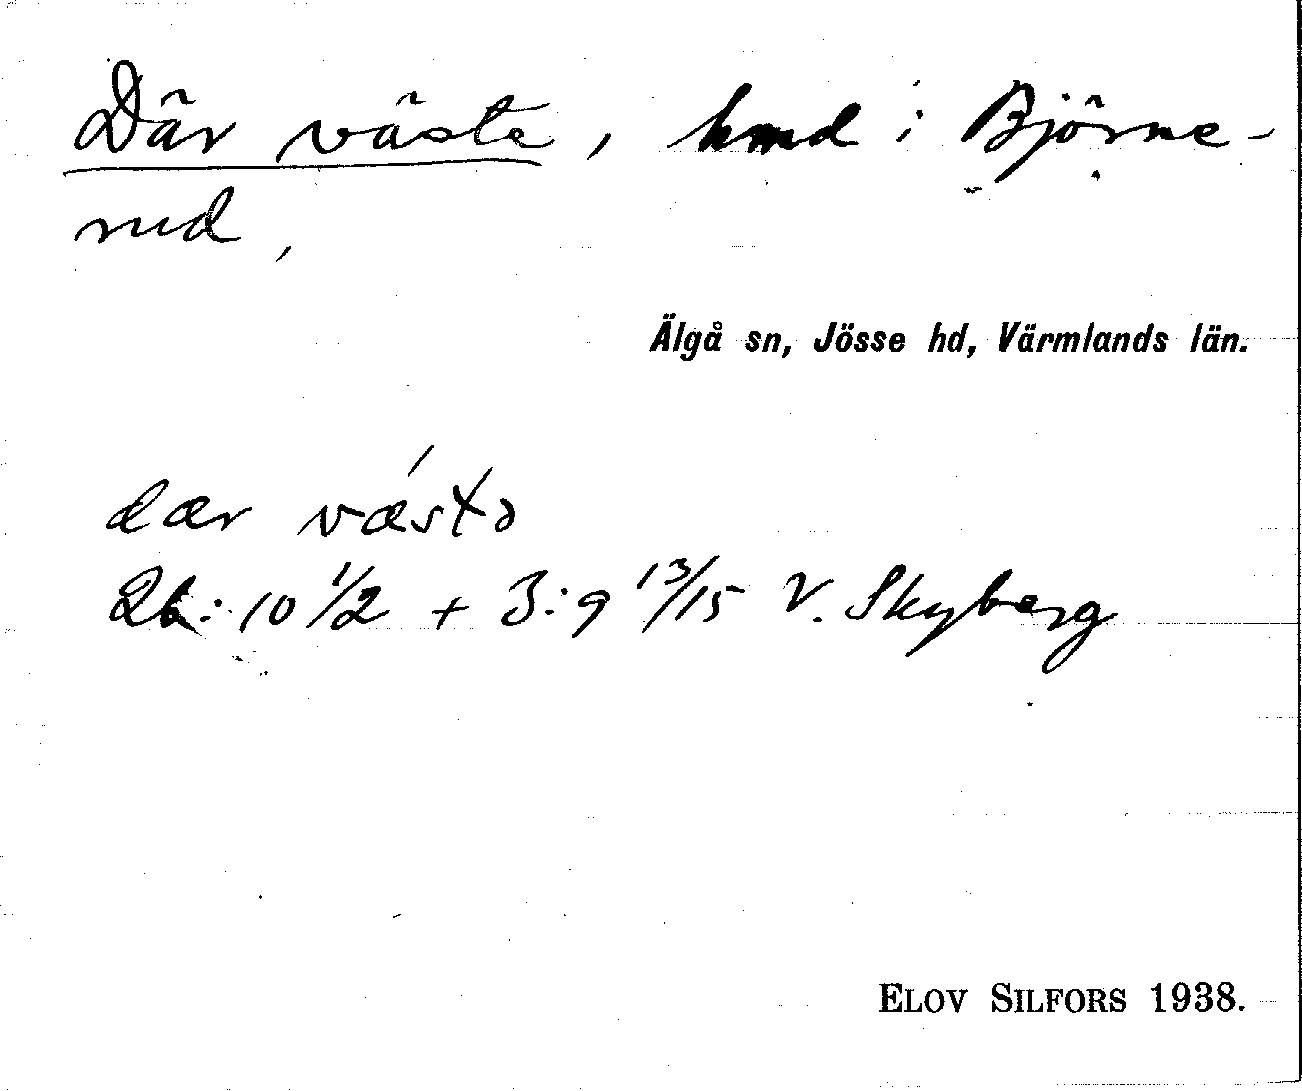 Där väste, hmd i Björne-
rud,
Älgå sn, Jösse hd, Värmlands län.
dær væstə
2b: 10 1/2 + 3:9 13/15 V. Skyberg
ELOV SILFORS 1938.